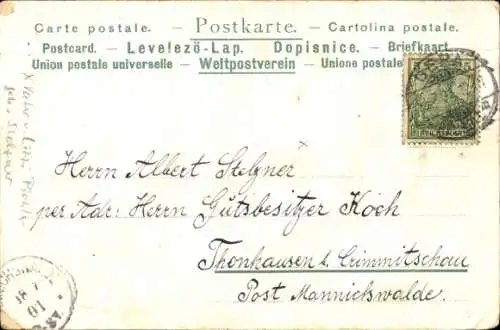 Carte postale. — Postkarte. — Cartolina postale.
Postcard. — Levelező-Lap. Dopisnice. — Briefkaart.
Union postale universelle — Weltpostverein — Unione postale
Herrn Albert Stelzner
per Adr: Herrn Gutsbesitzer Koch
Thonhausen b. Crimmitschau
Post Mannichswalde.
18 7
01